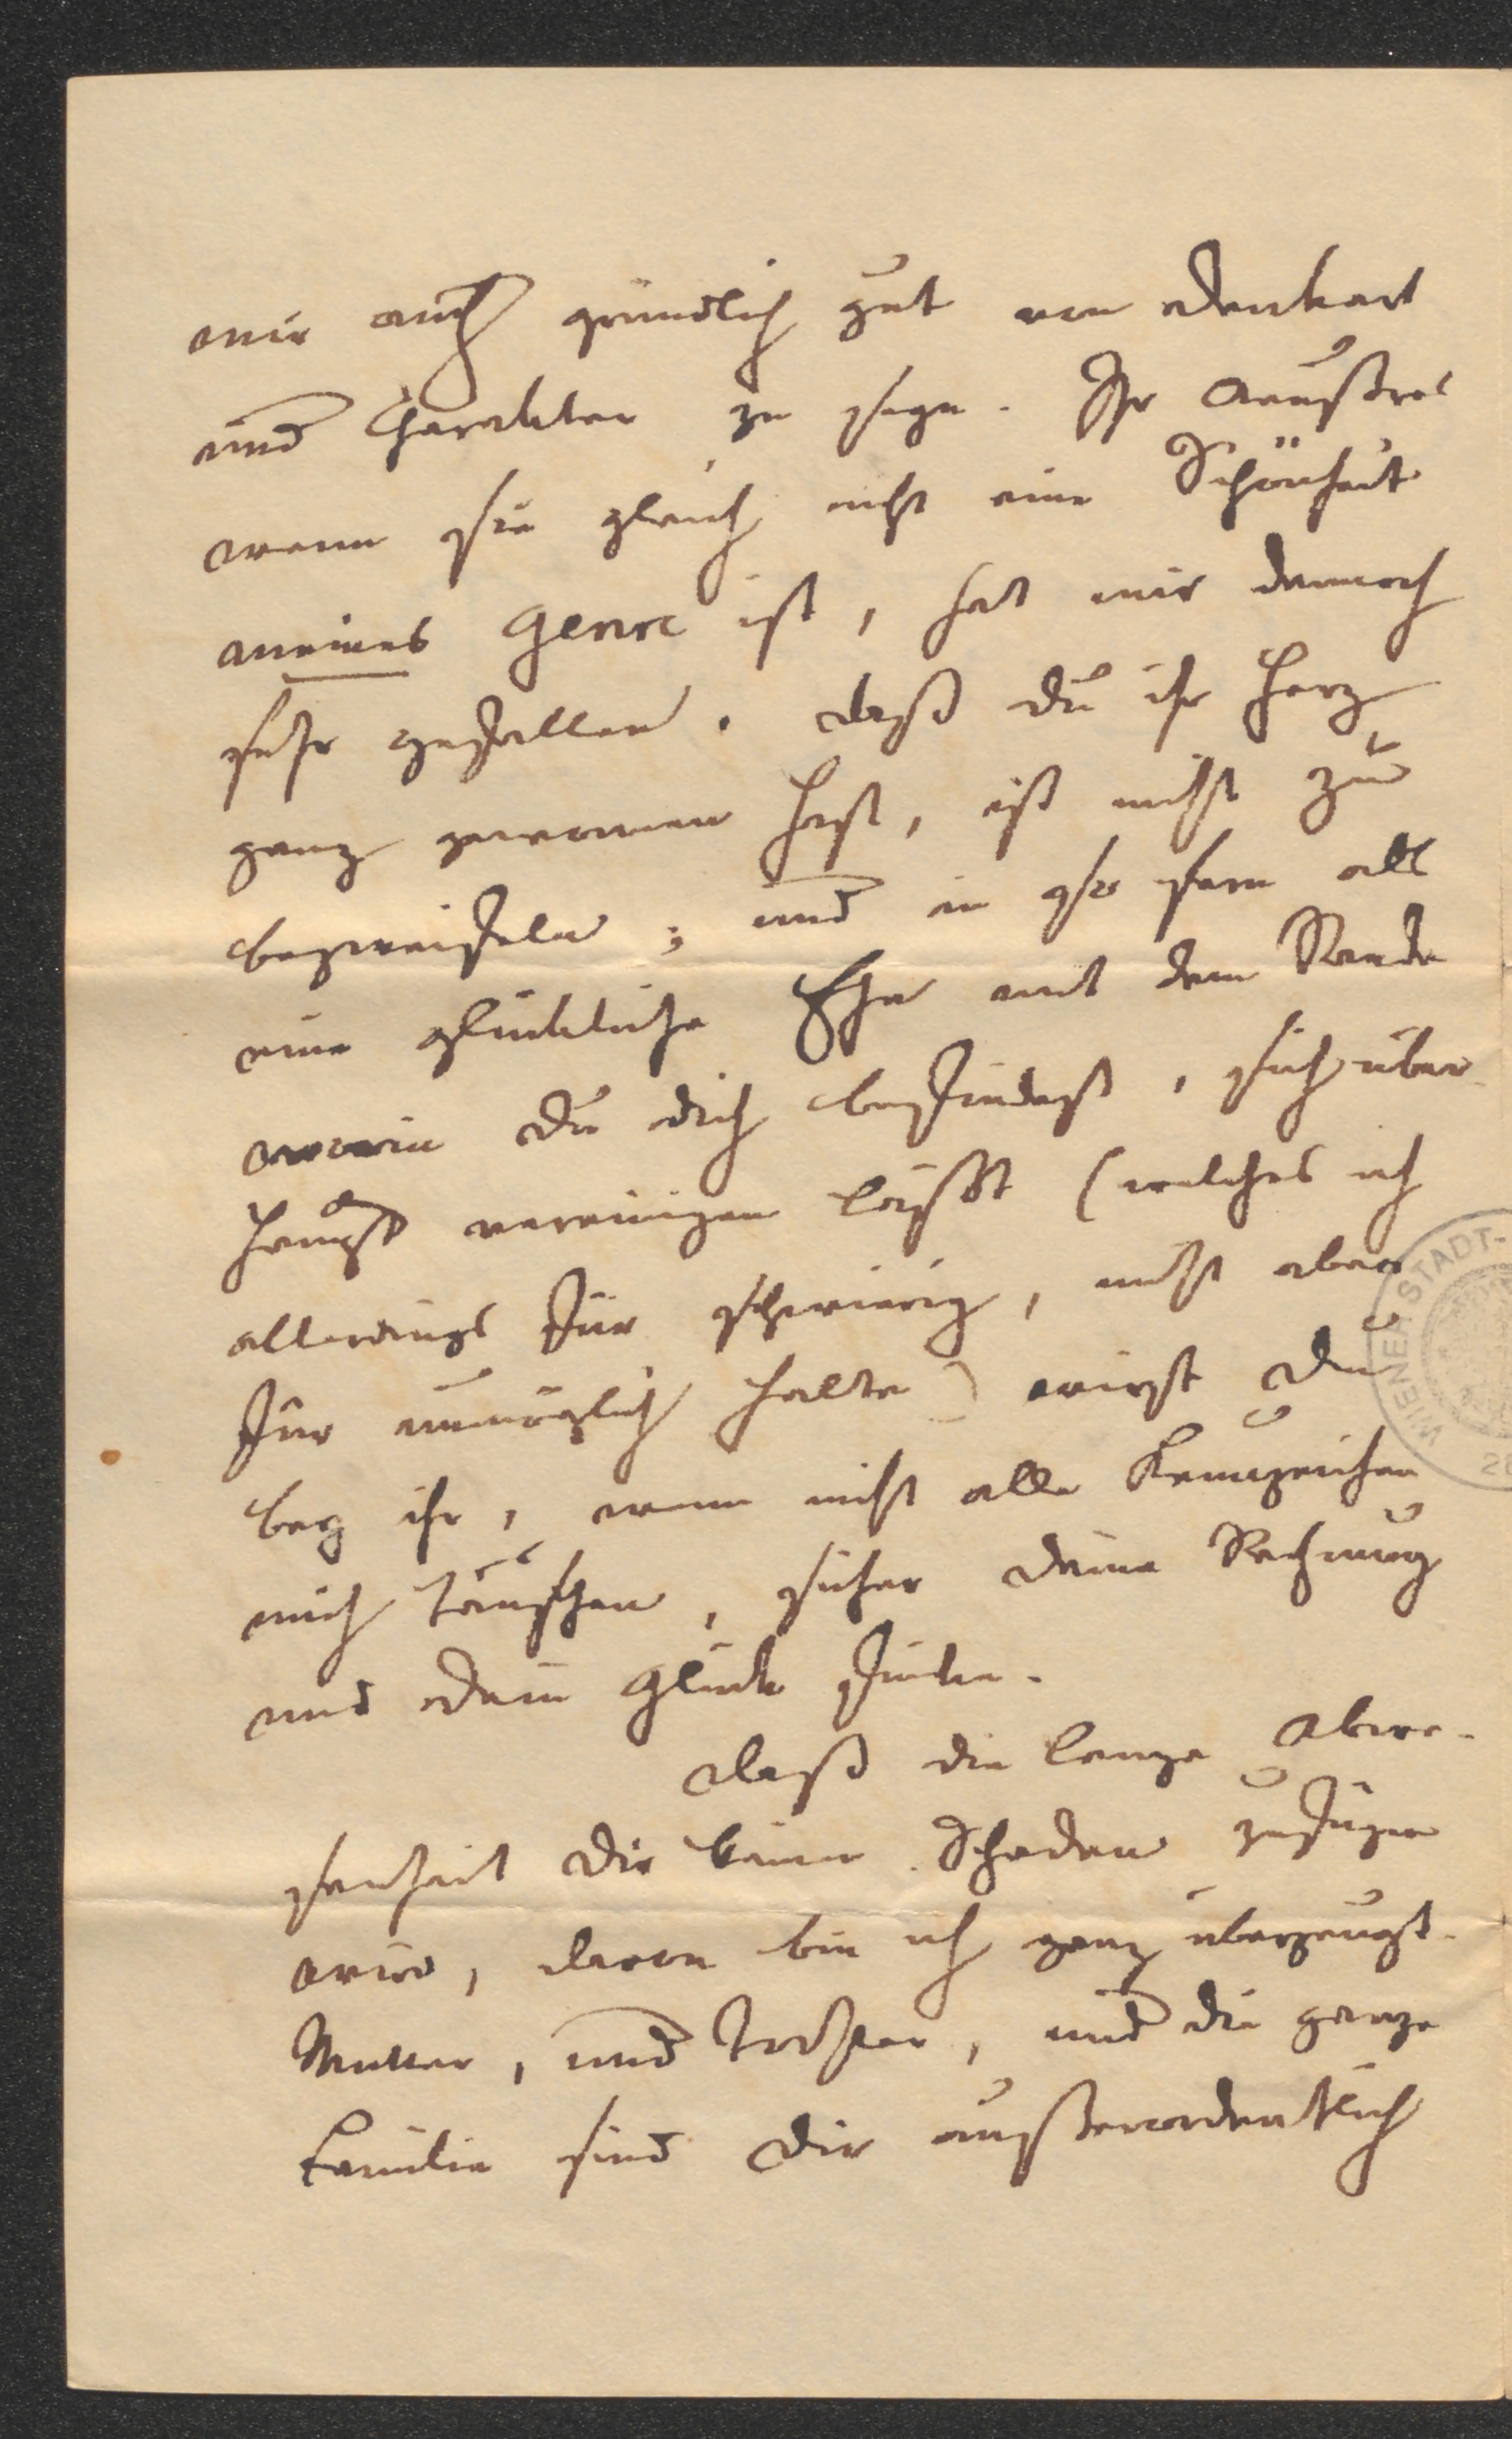 mir auch gründlich gut von Denkart
und Charakter zu seyn. Ihr Aeußres
wenn sie gleich nicht eine Schönheit
meines Genre ist, hat mir dennoch
sehr gefallen. Daß du ihr Herz
ganz gewonnen hast, ist nicht zu
bezweifeln; und in so fern als
eine glückliche Ehe mit dem Stande
worin du dich befindest, sich über-
haupt vereinigen läßt (welches ich
allerdings für schwierig, nicht aber
für unmöglich halte) wirst du
bey ihr, wenn nicht alle Kennzeichen
mich täuschen, sicher deine Rechnung
und dein Glück finden.
Daß die lange Abwe-
senheit dir keinen Schaden zufügen
wird, davon bin ich ganz überzeugt.
Mutter, und Tochter, und die ganze
Familie sind dir außerordentlich
WIENER STADT-